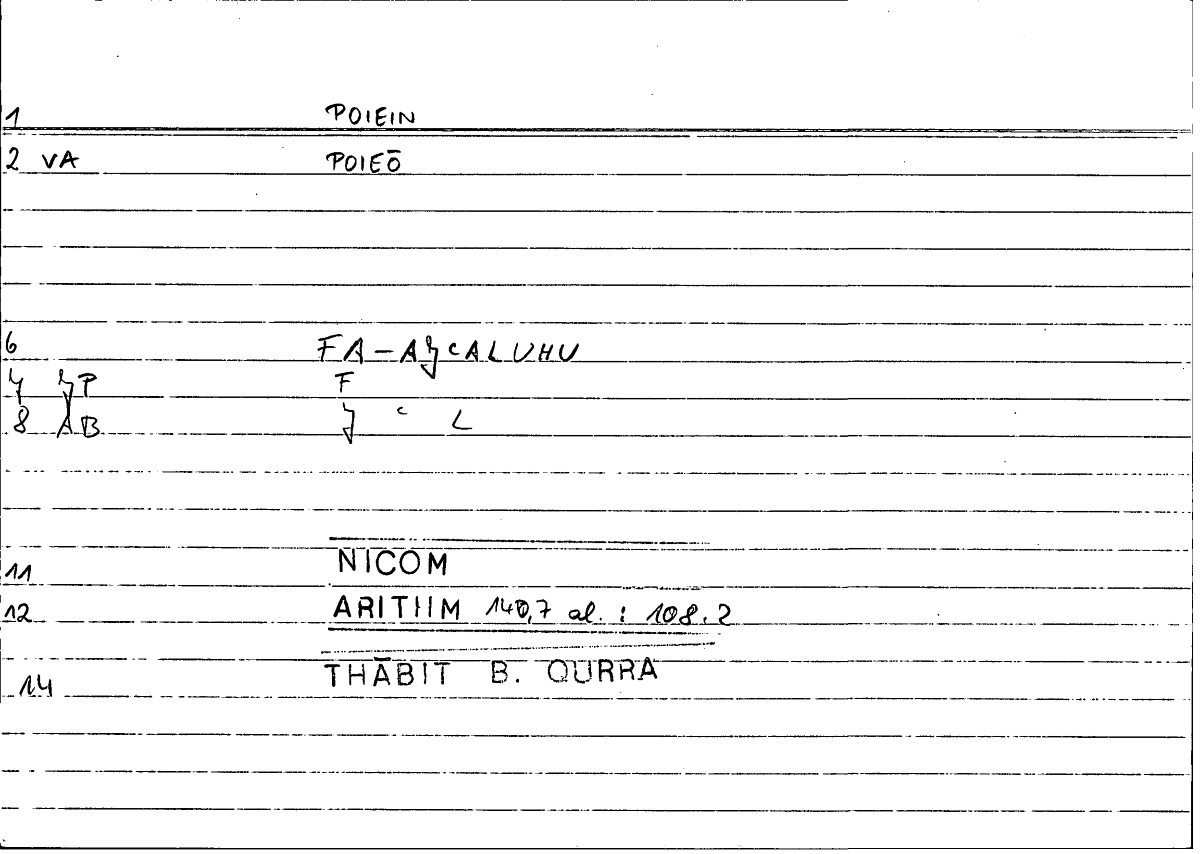 1 POIEIN
2 VA POIEŌ
6 FA-AǦᶜALUHU
7 P F
8 AB Ǧ ᶜ L
11 NICOM
12 ARITHM 140,7 al. : 108.2
14 THĀBIT B. QURRA